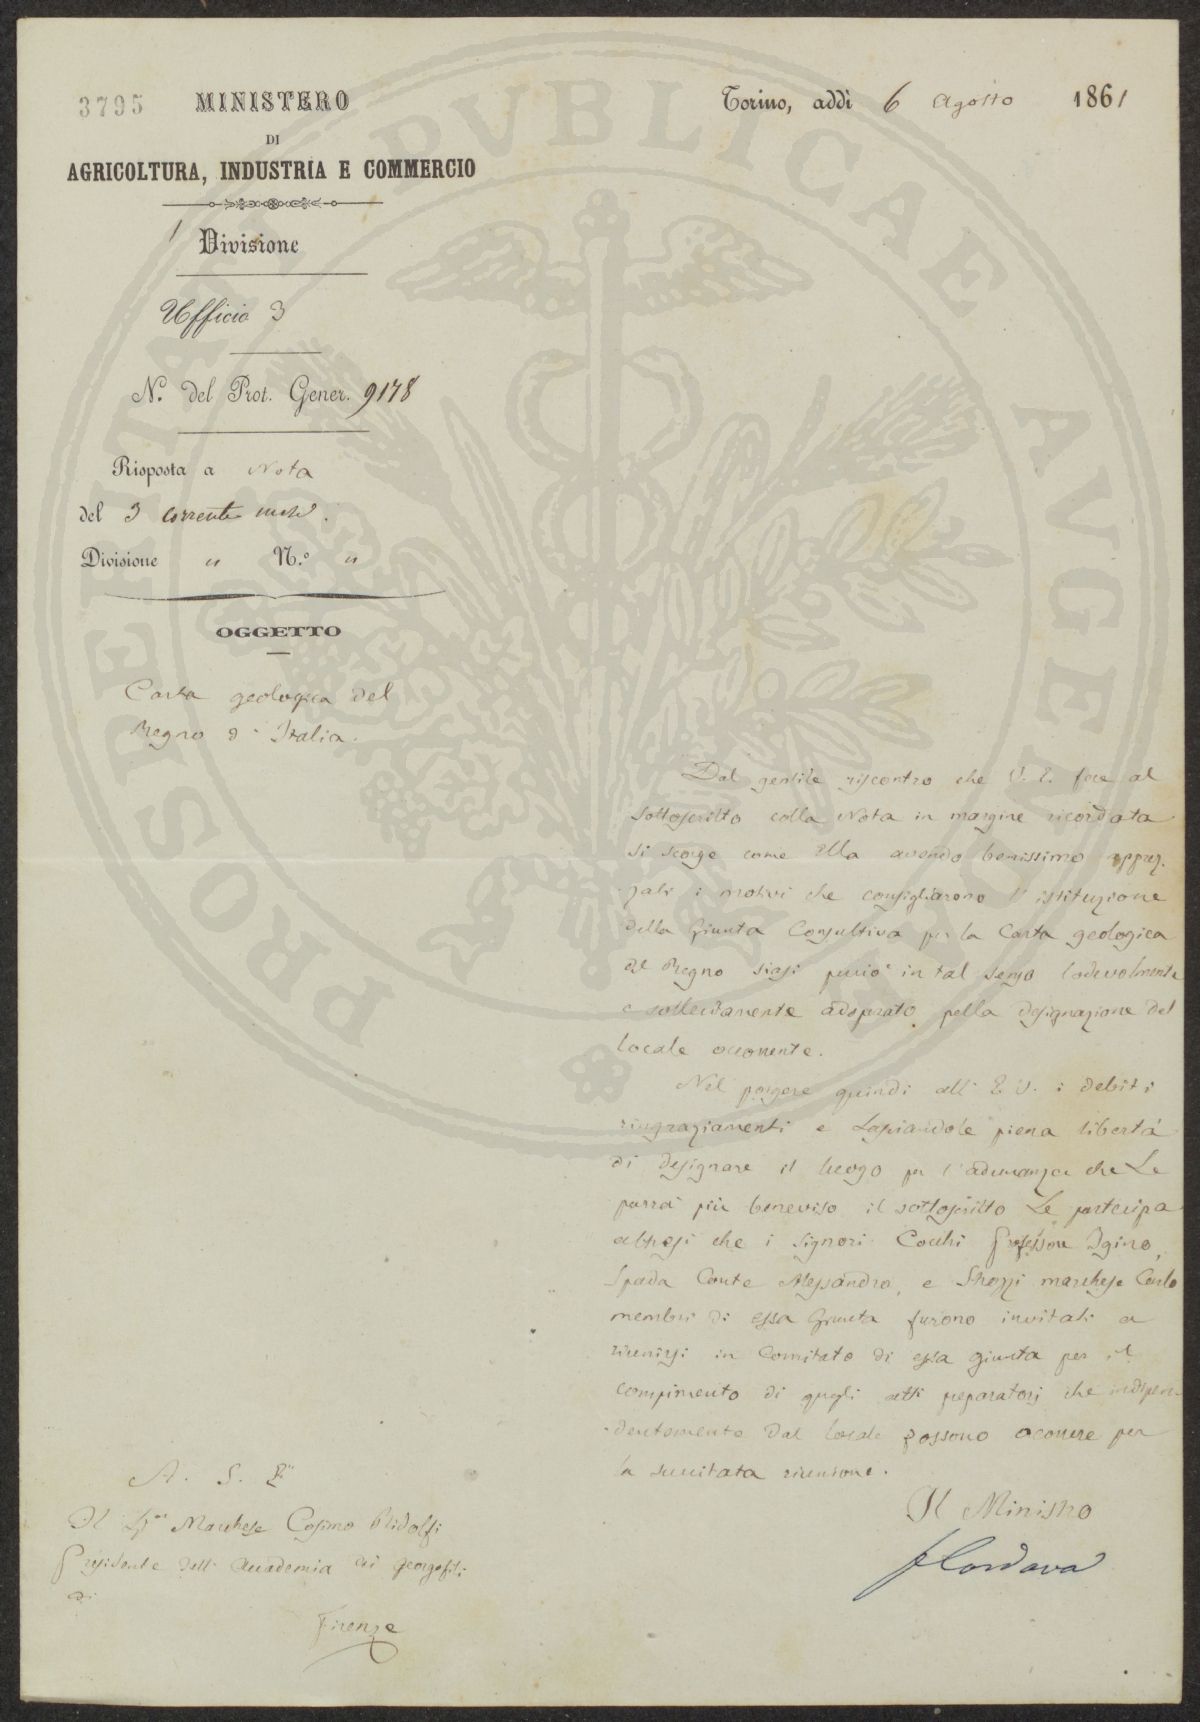 3795
MINISTERO
DI
AGRICOLTURA, INDUSTRIA E COMMERCIO
1 Divisione
Ufficio 3
N. del Prot. Gener. 9178
Risposta a Nota
del 3 corrente mese.
Divisione " N.° "
OGGETTO
Carta geologica del
Regno d'Italia.
Torino, addì 6 Agosto 1861
Dal gentile riscontro che V. E. fece al
sottoscritto colla Nota in margine ricordata
si scorge come Ella avendo benissimo apprez-
zati i motivi che consigliarono l'istituzione
della Giunta Consultiva per la Carta geologica
del Regno siasi perciò in tal senso lodevolmente
e sollecitamente adoperato pella designazione del
locale occorrente.
Nel porgere quindi all' E. V. i debiti
ringraziamenti e lasciandole piena libertà
di designare il luogo per l'adunanza che Le
parrà più beneviso il sottoscritto Le partecipa
altresì che i Signori Cocchi Professore Igino,
Spada Conte Alessandro, e Strozzi marchese Carlo
membri di essa Giunta furono invitati a
riunirsi in Comitato di essa giunta per il
compimento di quegli atti preparatorj che indipen-
dentemente dal locale possono occorrere per
la succitata riunione.
Il Ministro
F Cordova
A. S. E.
Il Sig. Marchese Cosimo Ridolfi
Presidente dell' Accademia dei georgofili
di
Firenze
PROSPERITATI PVBLICAE AVGENDAE